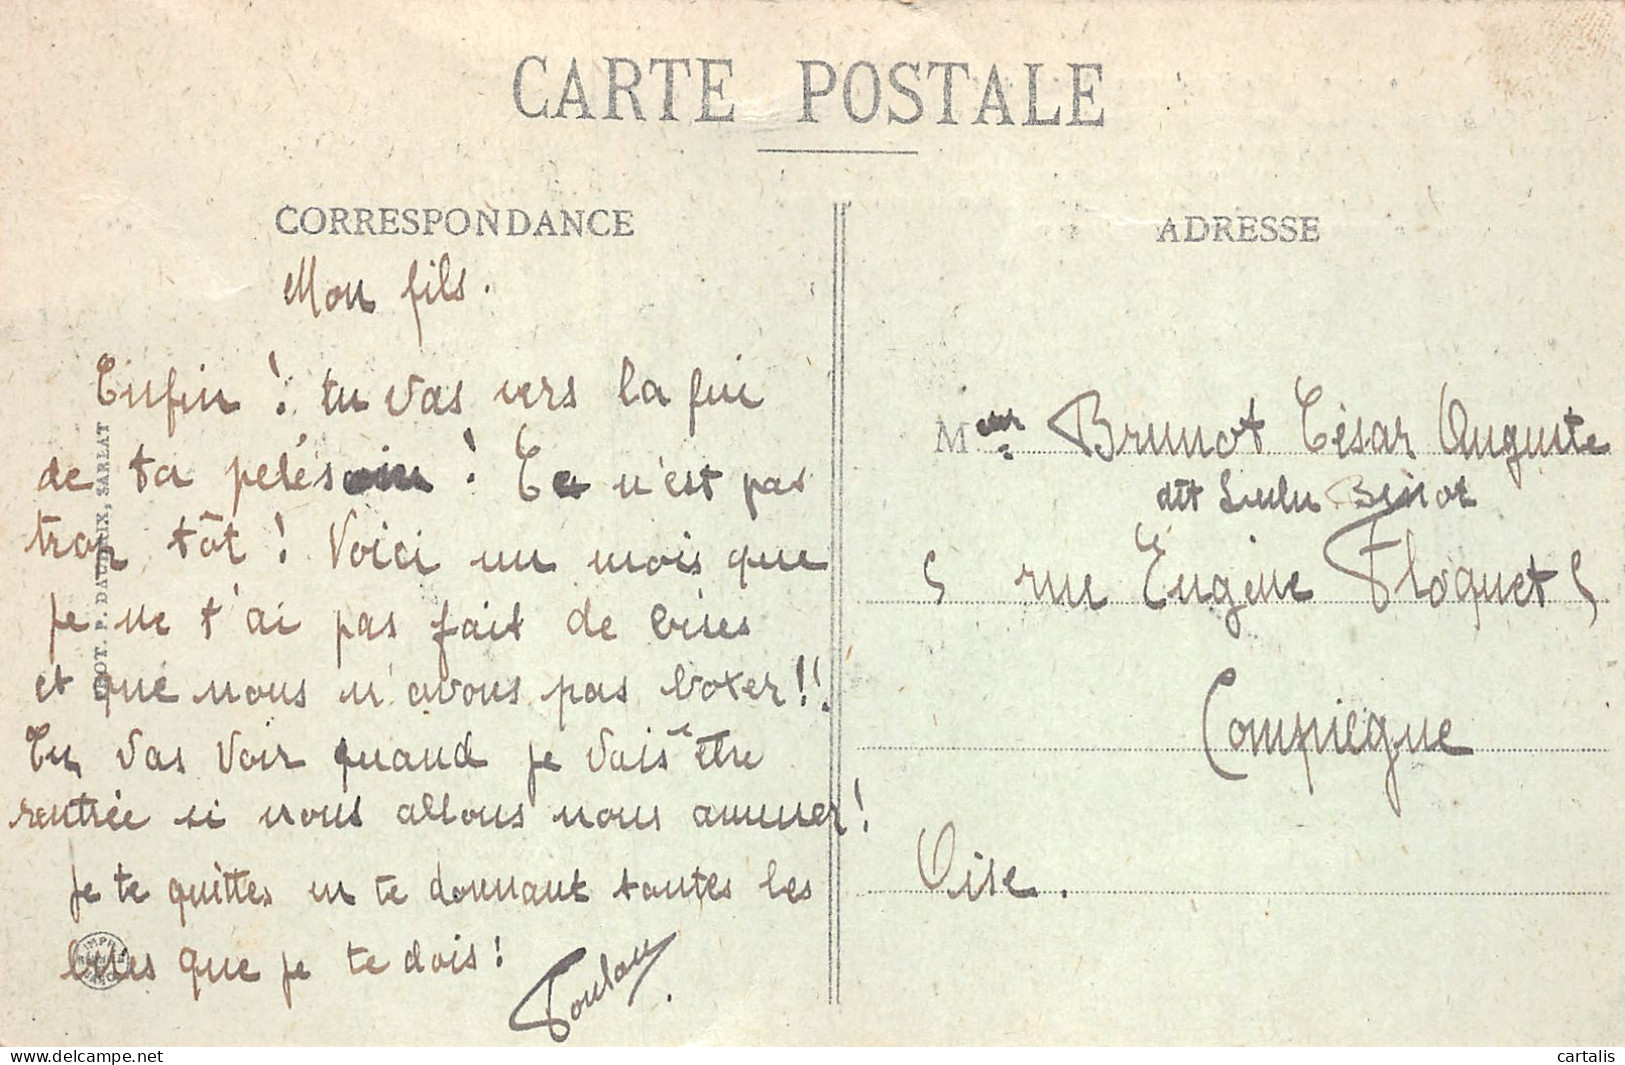 CARTE POSTALE
CORRESPONDANCE
Mon fils.
Enfin ! tu vas vers la fin
de ta ! Ce n'est pas
trop tôt ! Voici un mois que
je ne t'ai pas fait de bises
et que nous n'avons pas boxer !!
Tu vas voir quand je vais être
rentrée si nous allons nous amuser !
je te quittes en te donnant toutes les
bises que je te dois !
Poulou.
ADRESSE
Meur Brunot César Auguste
dit Lulu
5 rue Eugène Floquet 5
Compiègne
Oise.
PHOT. P. DAUDRIX, SARLAT
cartalis
www.delcampe.net